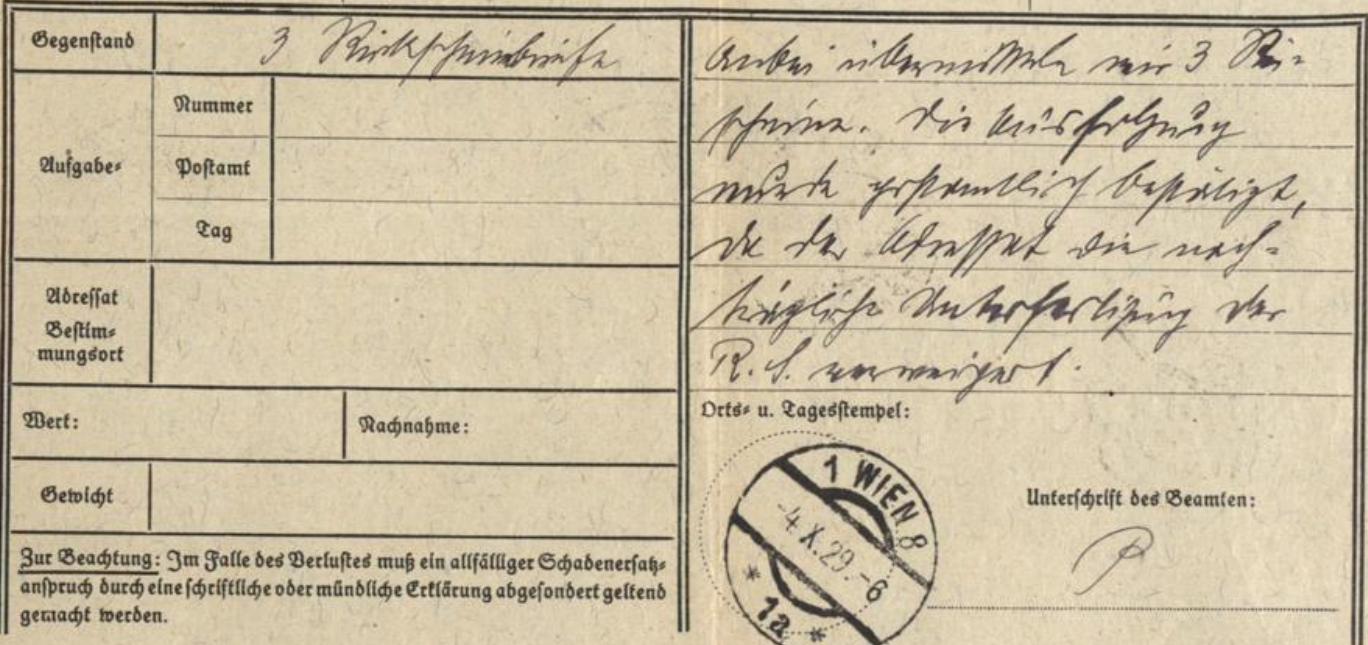 Gegenstand
3 Rückscheinbriefe
Aufgabe-
Nummer
Postamt
Tag
Adressat
Bestim-
mungsort
Wert:
Nachnahme:
Gewicht
Zur Beachtung: Im Falle des Verlustes muß ein allfälliger Schadenersatz-
anspruch durch eine schriftliche oder mündliche Erklärung abgesondert geltend
gemacht werden.
Anbei übermitteln wir 3
scheine. Die Ausfolgung
wurde postamtlich bestätigt,
da der Adressat die nach-
trägliche Unterfertigung der
R. S. verweigert.
Orts- u. Tagesstempel:
1 WIEN 8
-4.X.29.-6
* 1a *
Unterschrift des Beamten: